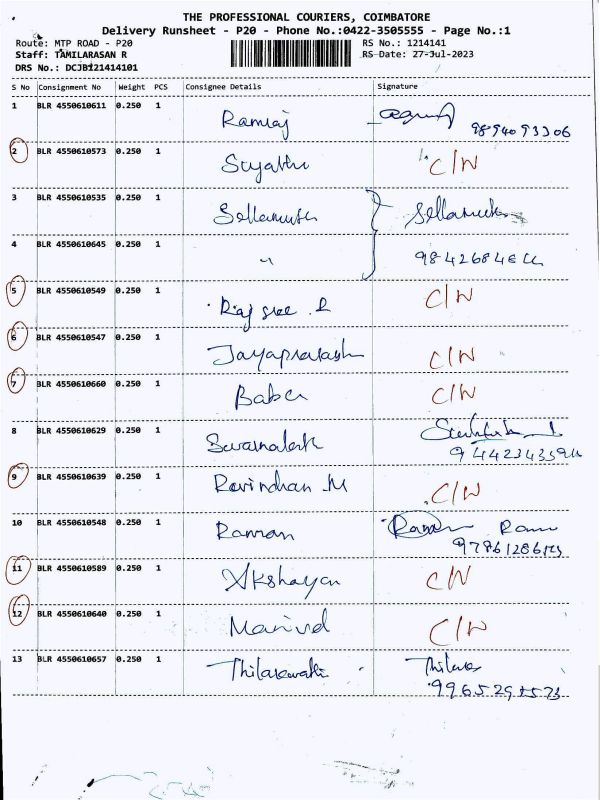 THE PROFESSIONAL COURIERS, COIMBATORE
Delivery Runsheet - P20 - Phone No.:0422-3505555 - Page No.:1
Route: MTP ROAD - P20 RS No.: 1214141
Staff: TAMILARASAN R RS-Date: 27-Jul-2023
DRS No.: DCJB121414101
S No Consignment No Weight PCS Consignee Details Signature
1 BLR 4550610611 0.250 1 Ramraj
9894093306
2 BLR 4550610573 0.250 1 C/N
3 BLR 4550610535 0.250 1 Sellamuthu
4 BLR 4550610645 0.250 1 "
5 BLR 4550610549 0.250 1 Raj sree . R C/N
6 BLR 4550610547 0.250 1 Jayaprakash C/N
7 BLR 4550610660 0.250 1 C/N
8 BLR 4550610629 0.250 1
9 BLR 4550610639 0.250 1 M C/N
10 BLR 4550610548 0.250 1 Raman
11 BLR 4550610589 0.250 1 Akshayan C/N
12 BLR 4550610640 0.250 1 C/N
13 BLR 4550610657 0.250 1 Thilakawathi